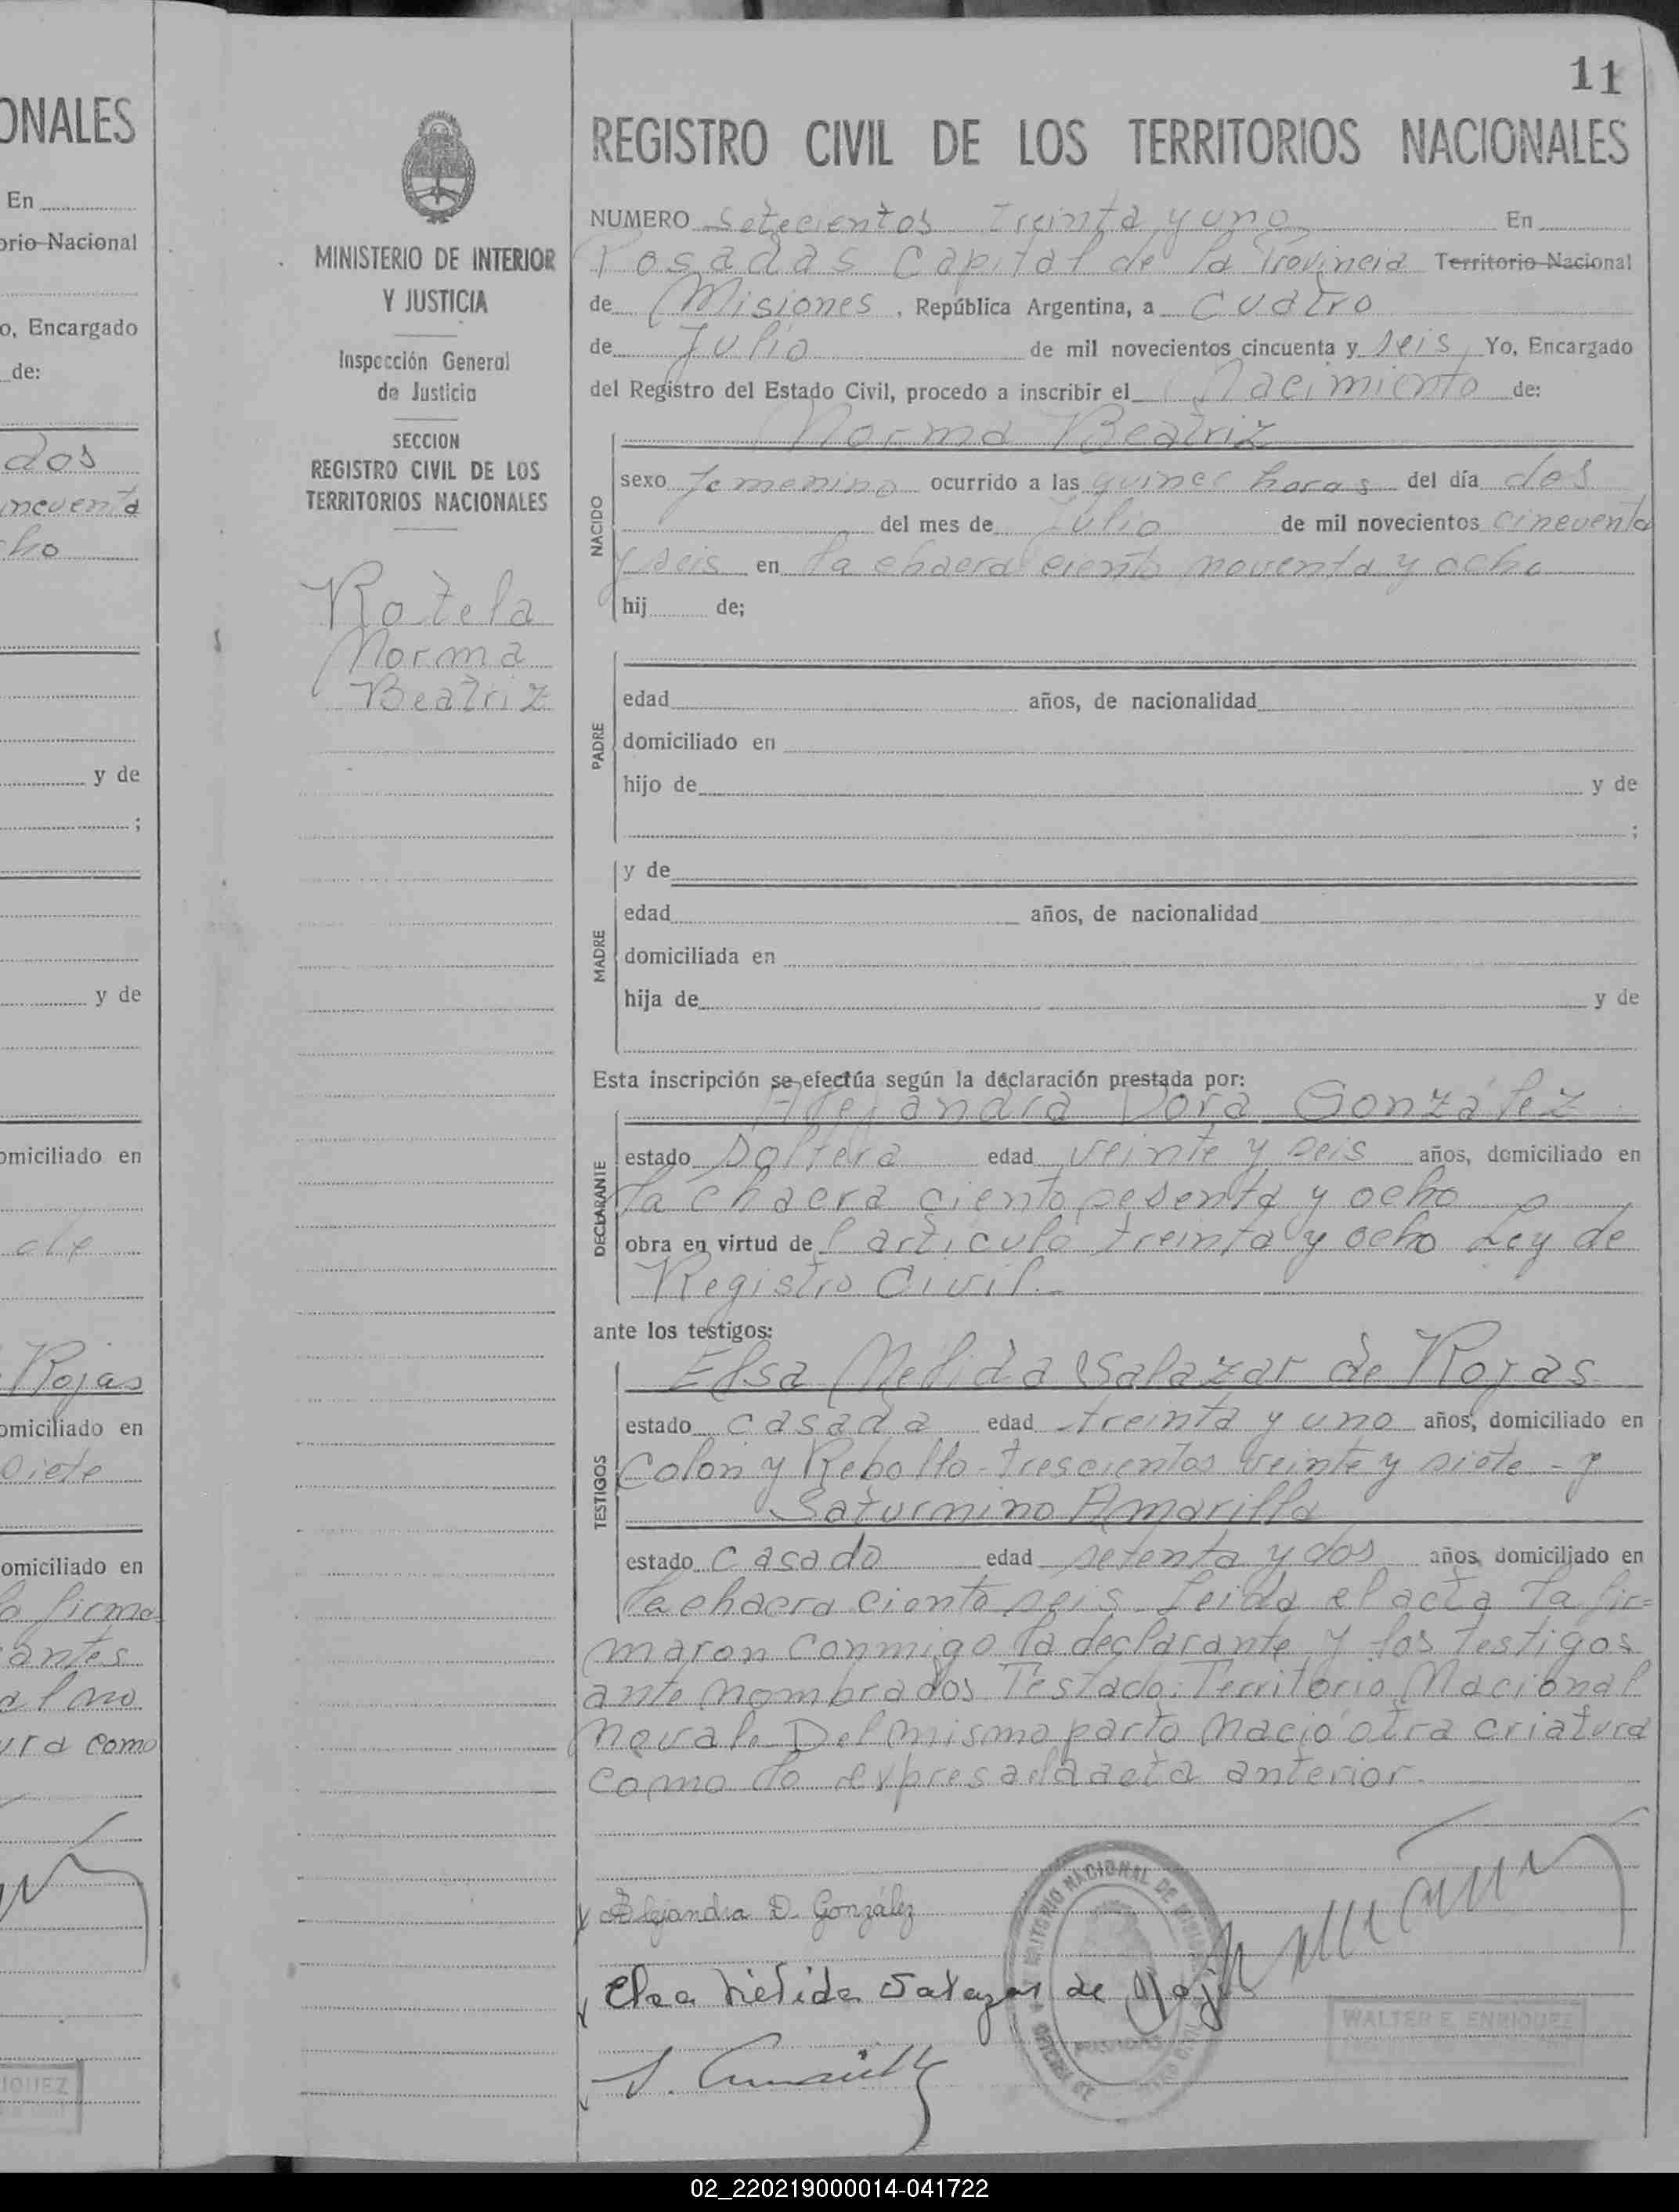 11
ONALES
En
orio Nacional
o, Encargado
de:
dos
incuenta
cho
y de
;
y de
omiciliado en
de
Rojas
omiciliado en
siete
omiciliado en
la firma
antes
al no
ura como
IQUEZ
MINISTERIO DE INTERIOR
Y JUSTICIA
Inspección General
de Justicia
SECCION
REGISTRO CIVIL DE LOS
TERRITORIOS NACIONALES
Rotela
Norma
Beatriz
REGISTRO CIVIL DE LOS TERRITORIOS NACIONALES
NUMERO Setecientos treinta y uno En
Posadas Capital de la Provincia Territorio Nacional
de Misiones, República Argentina, a cuatro
de Julio de mil novecientos cincuenta y seis, Yo, Encargado
del Registro del Estado Civil, procedo a inscribir el Nacimiento de:
Norma Beatriz
NACIDO
sexo femenino ocurrido a las quince horas del día dos
del mes de Julio de mil novecientos cincuenta
y seis en la chacra ciento noventa y ocho
hij de;
PADRE
edad años, de nacionalidad
domiciliado en
hijo de y de
;
y de
MADRE
edad años, de nacionalidad
domiciliada en
hija de y de
Esta inscripción se efectúa según la declaración prestada por:
Alejandra Dora González
DECLARANTE
estado Soltera edad veinte y seis años, domiciliado en
la chacra ciento sesenta y ocho
obra en virtud del artículo treinta y ocho Ley de
Registro Civil.-
ante los testigos:
Elsa Nelida Salazar de Rojas
TESTIGOS
estado casada edad treinta y uno años, domiciliado en
Colon y Rebollo-trescientos veinte y siete - y
Saturnino Amarilla
estado casado edad setenta y dos años, domiciliado en
la chacra ciento seis. Leida el acta la fir=
maron conmigo la declarante y los testigos
ante nombrados Testado: Territorio Nacional
no vale. Del mismo parto nació otra criatura
como lo expresa la acta anterior.
Alejandra D. González
Elsa Nelida Salazar de Rojas
S. Amarilla
POSADAS
WALTER E. ENRIQUEZ
02_220219000014-041722